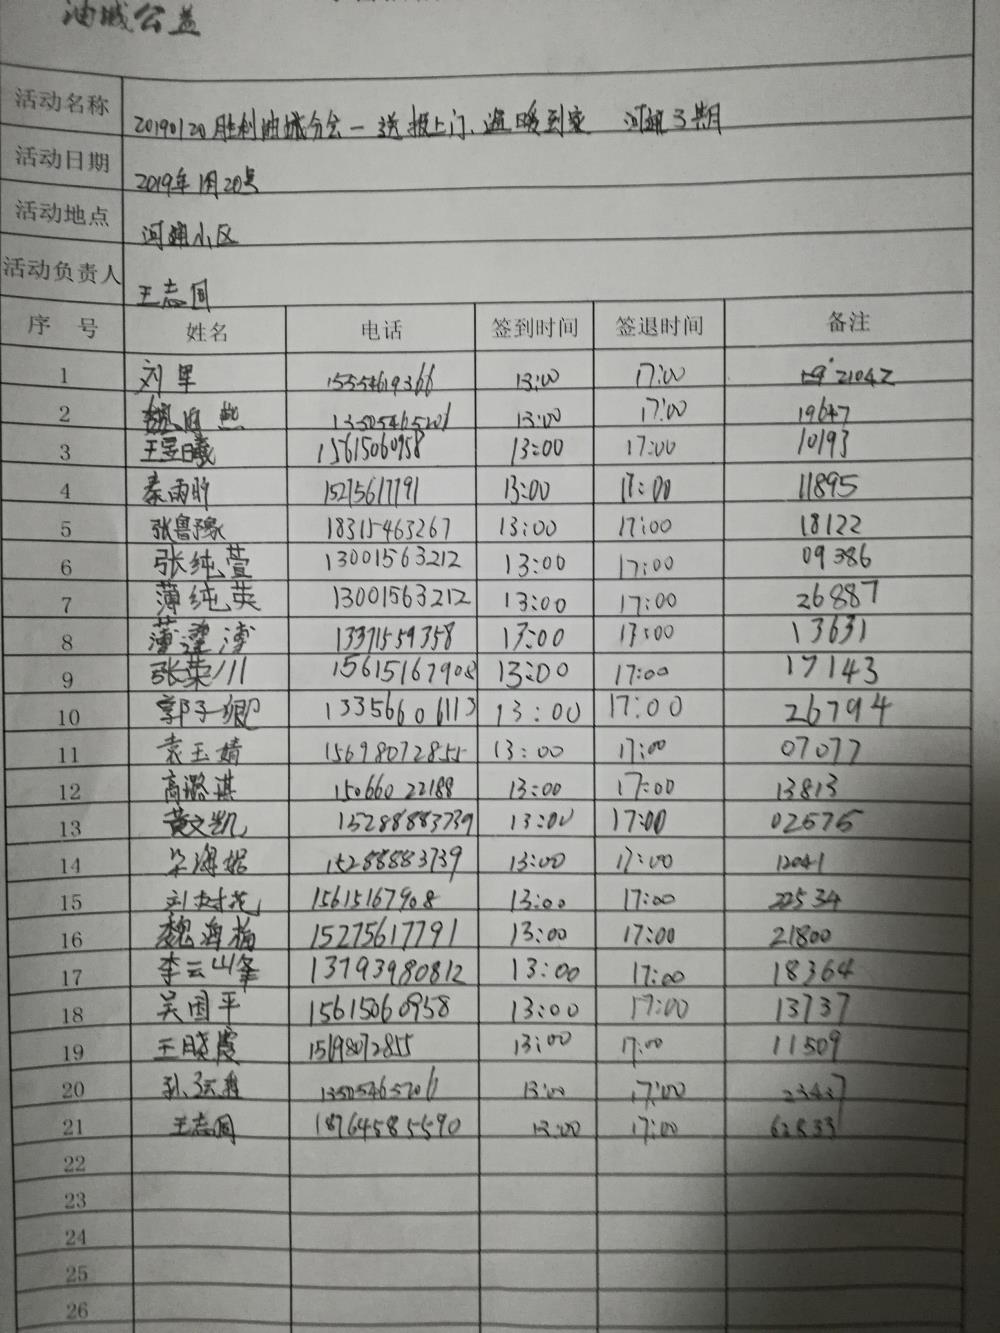 油城公益
活动名称 20190120胜利油城分会一送报上门、温暖到家 河翔3期
活动日期 2019年1月20号
活动地点 河翔小区
活动负责人 王志国
序号 姓名 电话 签到时间 签退时间 备注
1 刘军 15554619366 13:00 17:00 21042
2 13505465201 13:00 17:00 19647
3 王昱曦 15615060958 13:00 17:00 10193
4 秦雨昕 15275617791 13:00 17:00 11895
5 张鲁豫 18315463267 13:00 17:00 18122
6 张纯萱 13001563212 13:00 17:00 09386
7 薄纯英 13001563212 13:00 17:00 26887
8 13371559358 13:00 17:00 13631
9 张荣川 15615167908 13:00 17:00 17143
10 郭子卿 13356606113 13:00 17:00 26794
11 袁玉婧 15698072855 13:00 17:00 07077
12 高潞淇 15066022188 13:00 17:00 13813
13 黄文凯 15288883739 13:00 17:00 02575
14 15288883739 13:00 17:00 12041
15 刘树花 15615167908 13:00 17:00 22534
16 魏海梅 15275617791 13:00 17:00 21800
17 李云峰 13793980812 13:00 17:00 18364
18 吴国平 15615060958 13:00 17:00 13737
19 王晓霞 15198072855 13:00 17:00 11509
20 13505465201 13:00 17:00 23437
21 王志国 18764585590 13:00 17:00 62833
22
23
24
25
26